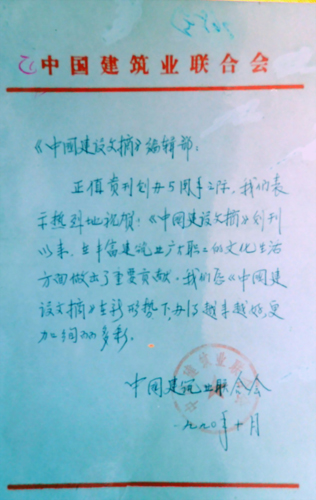 中国建筑业联合会
《中国建设文摘》编辑部：
正值贵刊创办5周年之际，我们表
示热烈地祝贺。《中国建设文摘》创刊
以来，在丰富建筑业广大职工的文化生活
方面做出了重要贡献。我们愿《中国建
设文摘》在新形势下，办得越来越好，更
加绚丽多彩。
中国建筑业联合会
一九九〇年十月